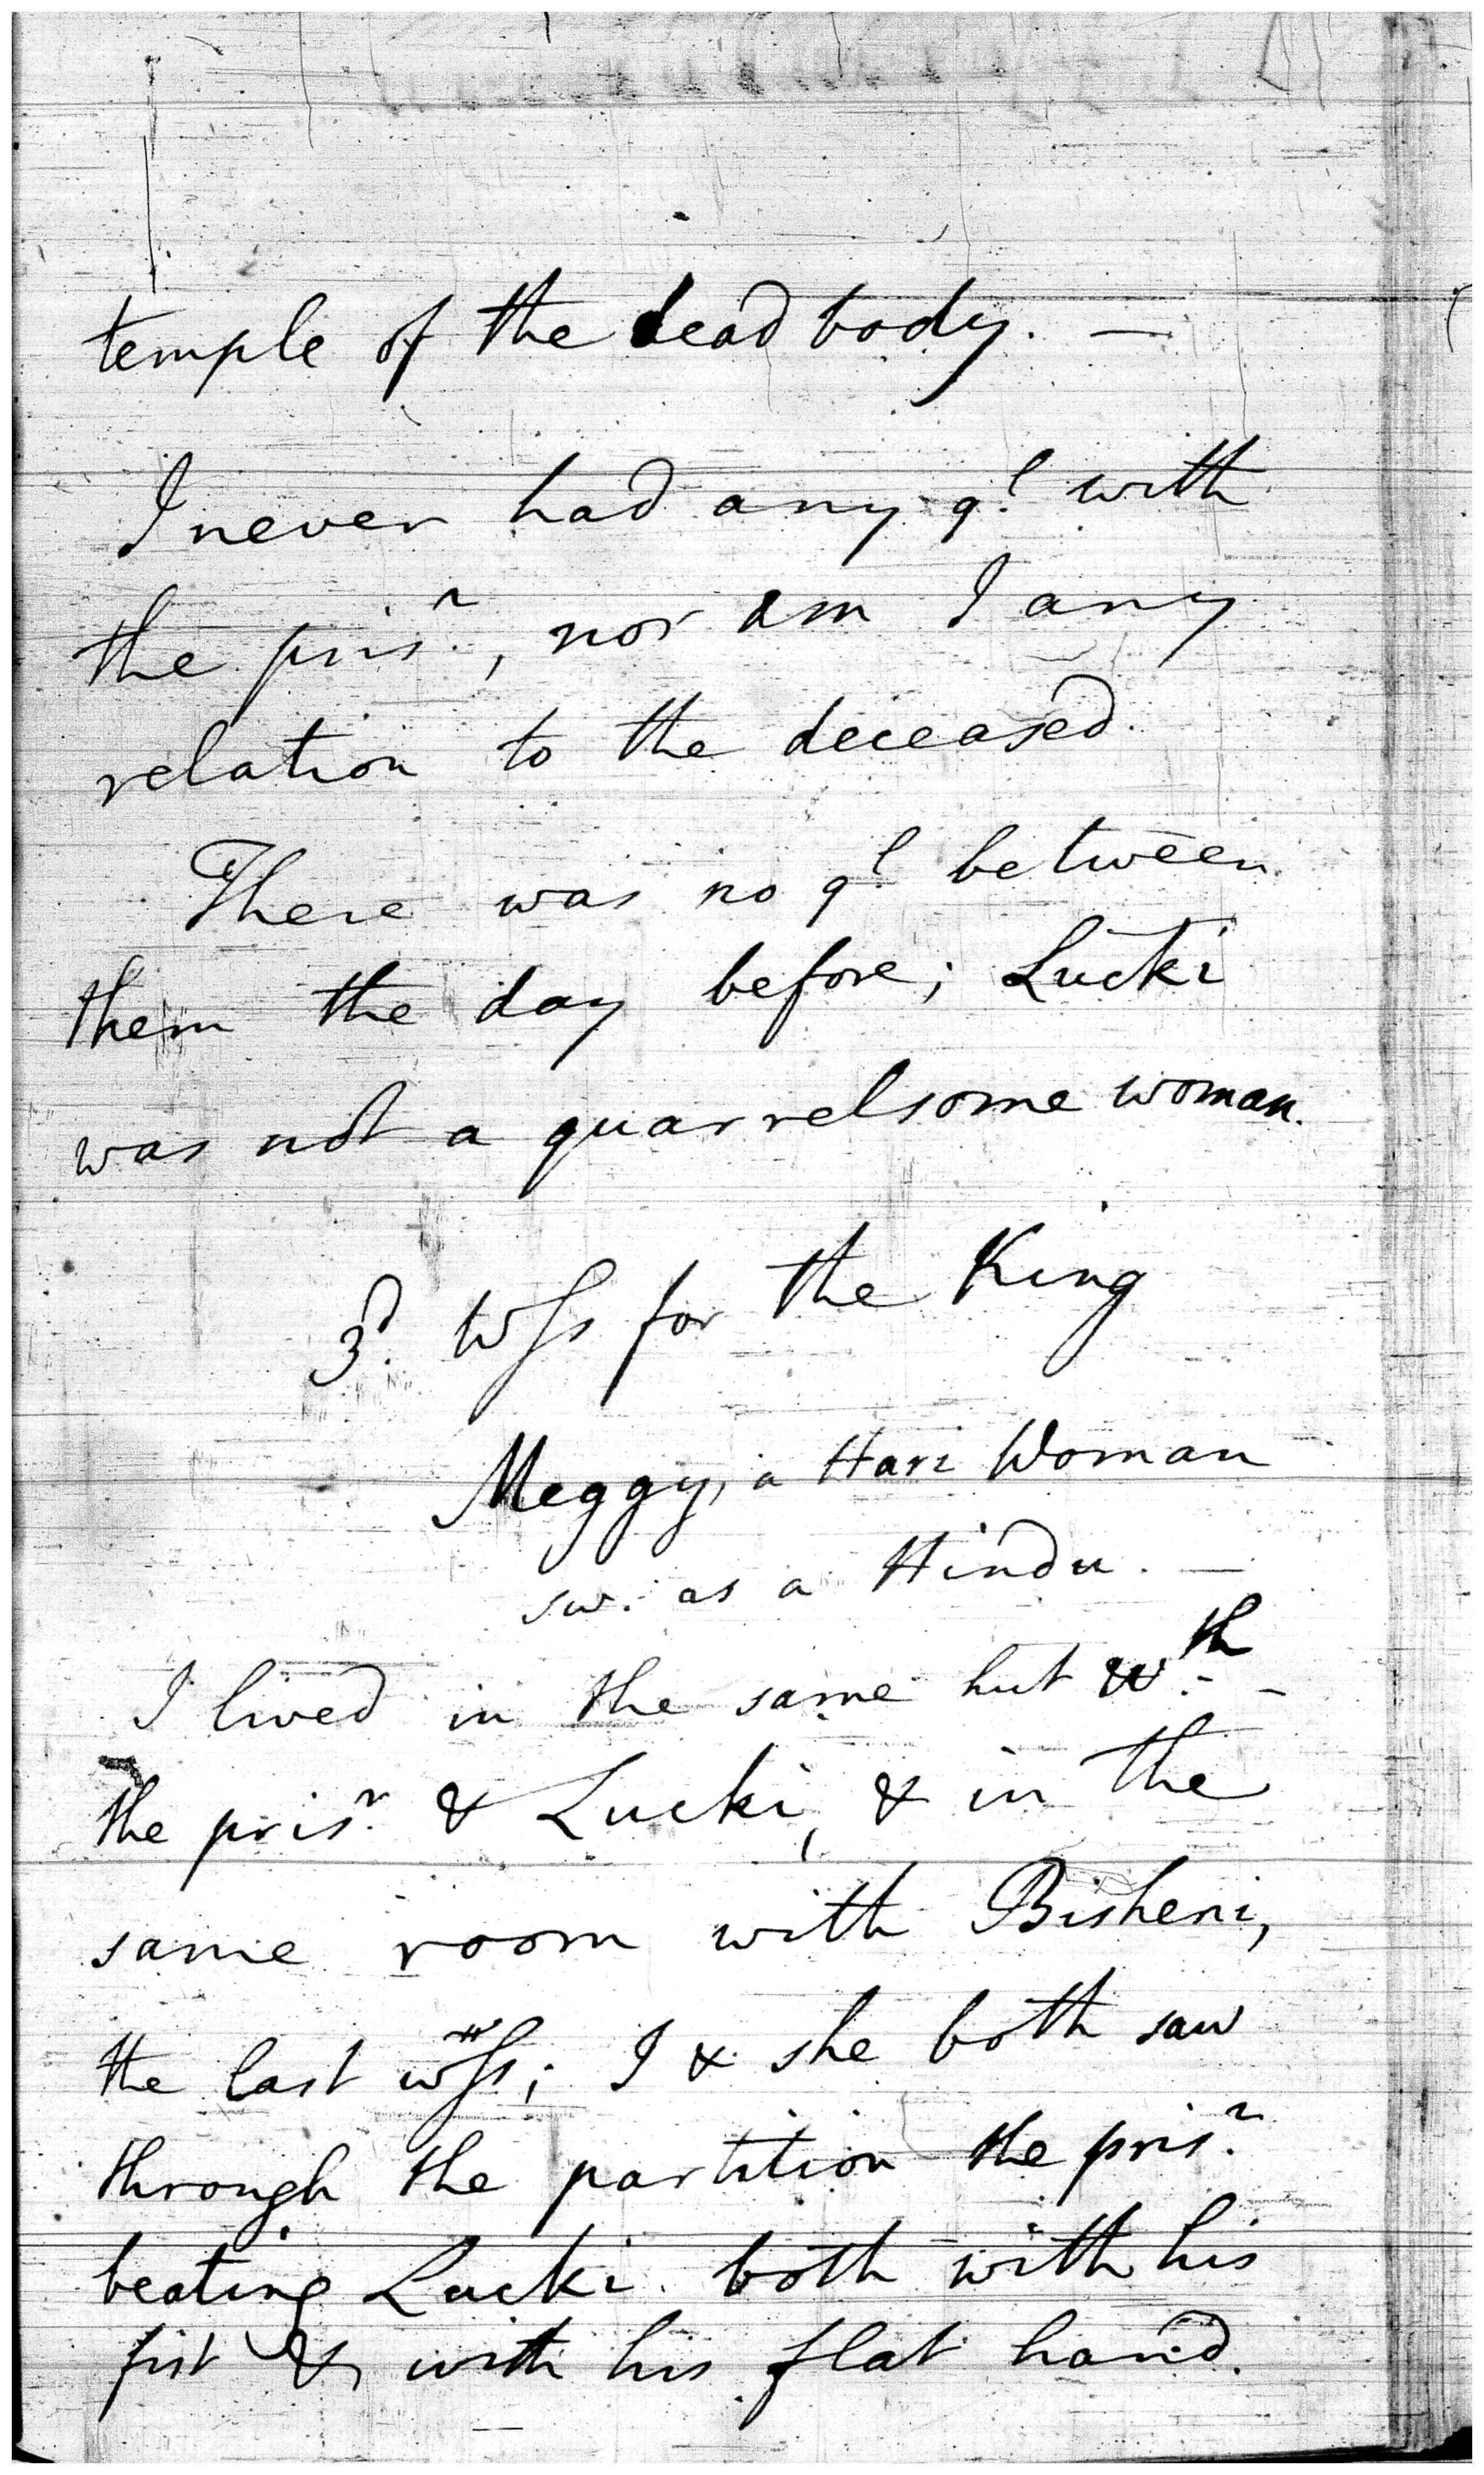 temple of the dead body. —
I never had any ql. with
the prisr., nor am I any
relation to the deceased.
There was no ql. between
them the day before; Lucki
was not a quarrelsome woman.
3d. Wss for the King
Meggy, a Hari Woman
sw. as a Hindu. —
I lived in the same hut wth. -
the prisr. & Lucki, & in the
same room with Bisheni,
the last wss; I & she both saw
through the partition the prisr.
beating Lucki both with his
fist & with his flat hand.